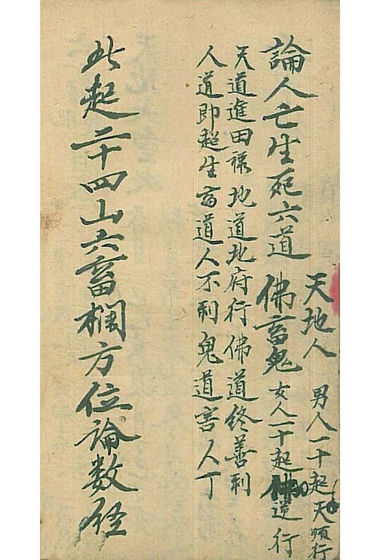 論人亡生死六道
天地人 男人一十起天順行
佛畜鬼 女人一十起佛逆行
天道進田祿地道北府行佛道終善利
人道即超生畜道人不利鬼道害人丁
此起二十四山六畜欄方位論數徑